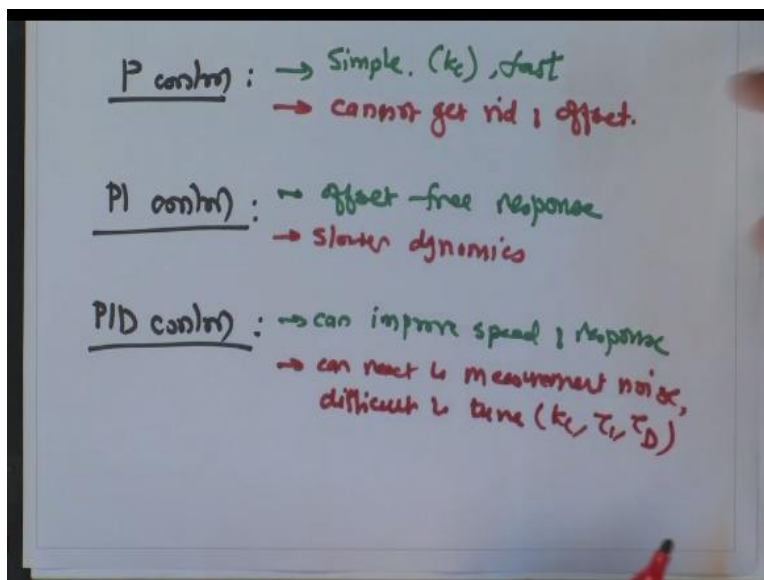 P control : → Simple. (kc), fast
→ cannot get rid of offset.
PI control : → offset-free response
→ slower dynamics
PID control : → can improve speed of response
→ can react to measurement noise,
difficult to tune (kc, τI, τD)